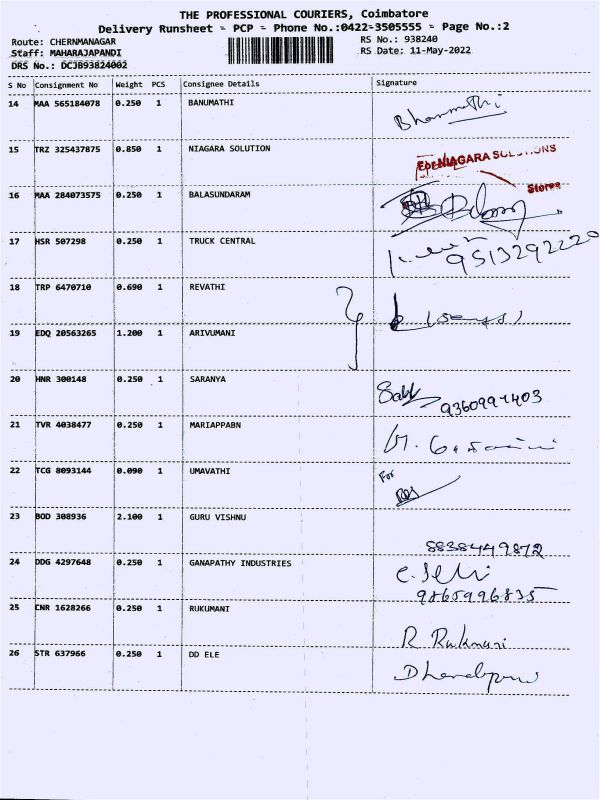 THE PROFESSIONAL COURIERS, Coimbatore
Delivery Runsheet = PCP = Phone No.:0422-3505555 = Page No.:2
Route: CHERNMANAGAR RS No.: 938240
Staff: MAHARAJAPANDI RS Date: 11-May-2022
DRS No.: DCJB93824002
S No Consignment No Weight PCS Consignee Details Signature
14 MAA 565184078 0.250 1 BANUMATHI Bhanumathi
15 TRZ 325437875 0.850 1 NIAGARA SOLUTION
For NIAGARA SOLUTIONS
Stores
16 MAA 284073575 0.250 1 BALASUNDARAM
17 HSR 507298 0.250 1 TRUCK CENTRAL
9513292220
18 TRP 6470710 0.690 1 REVATHI
19 EDQ 20563265 1.200 1 ARIVUMANI
20 HNR 300148 0.250 1 SARANYA
9360997403
21 TVR 4038477 0.250 1 MARIAPPABN
22 TCG 8093144 0.090 1 UMAVATHI For
23 BOD 308936 2.100 1 GURU VISHNU
8838449872
24 DDG 4297648 0.250 1 GANAPATHY INDUSTRIES C. Selvi
9865996835
25 CNR 1628266 0.250 1 RUKUMANI
R Rukmani
26 STR 637966 0.250 1 DD ELE